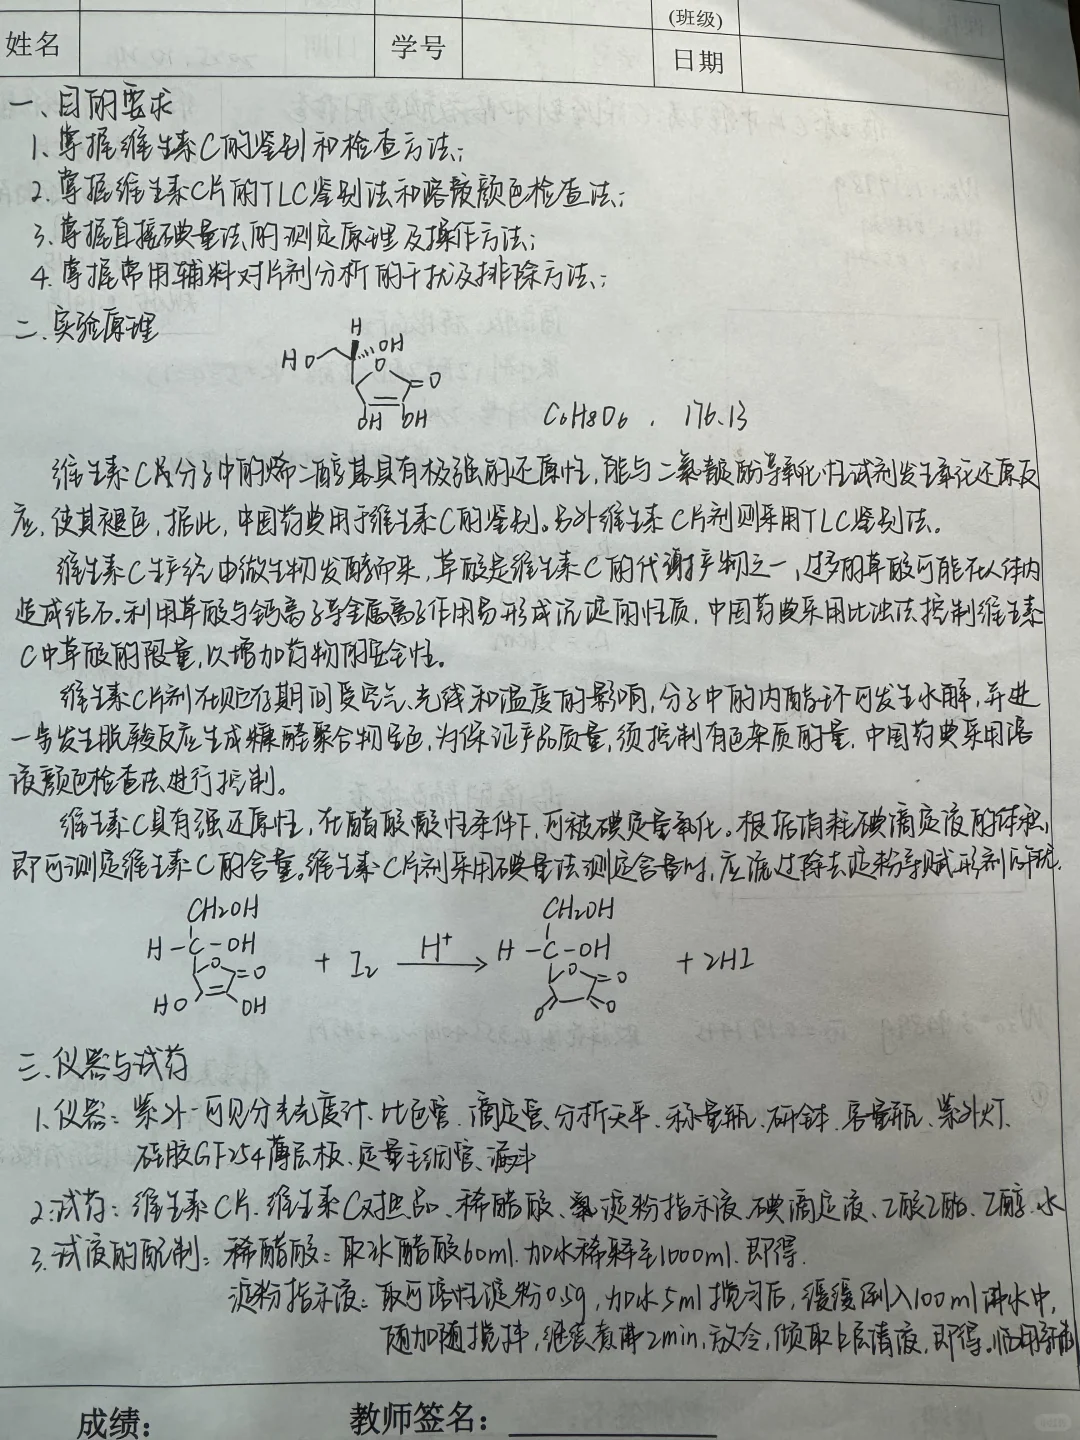 (班级)
姓名 学号 日期
一、目的要求
1、掌握维生素C的鉴别和检查方法;
2、掌握维生素C片的TLC鉴别法和溶液颜色检查法;
3、掌握直接碘量法的测定原理及操作方法;
4、掌握常用辅料对片剂分析的干扰及排除方法;
二、实验原理
H
HO OH
O O
OH OH C6H8O6 , 176.13
维生素C分子中的烯二醇基具有极强的还原性,能与二氯靛酚等氧化性试剂发生氧化还原反
应,使其褪色,据此,中国药典用于维生素C的鉴别。另外维生素C片剂则采用TLC鉴别法.
维生素C生产经由微生物发酵而来,草酸是维生素C的代谢产物之一,过多的草酸可能在人体内
造成结石.利用草酸与钙离子等金属离子作用易形成沉淀的性质,中国药典采用比浊法控制维生素
C中草酸的限量,以增加药物的安全性。
维生素C片剂在贮存期间受空气、光线和温度的影响,分子中的内酯环可发生水解,并进
一步发生脱羧反应生成糠醛聚合物呈色,为保证产品质量,须控制有色杂质的量,中国药典采用溶
液颜色检查法进行控制。
维生素C具有强还原性,在醋酸酸性条件下,可被碘定量氧化。根据消耗碘滴定液的体积,
即可测定维生素C的含量。维生素C片剂采用碘量法测定含量时,应滤过除去淀粉等赋形剂的干扰.
CH2OH CH2OH
H-C-OH + I2 H+ H-C-OH + 2HI
O =O O =O
HO OH O O
三、仪器与试药
1、仪器:紫外-可见分光光度计、比色管、滴定管、分析天平、称量瓶、研钵、容量瓶、紫外灯、
硅胶GF254薄层板、定量毛细管、漏斗
2.试药:维生素C片、维生素C对照品、稀醋酸、淀粉指示液、碘滴定液、乙酸乙酯、乙醇、水
3.试液的配制:稀醋酸:取冰醋酸60ml.加水稀释至1000ml.即得.
淀粉指示液:取可溶性淀粉0.5g,加水5ml搅匀后,缓缓倒入100ml沸水中,
随加随搅拌,继续煮沸2min,放冷,倾取上层清液,即得。临用新制
成绩: 教师签名: